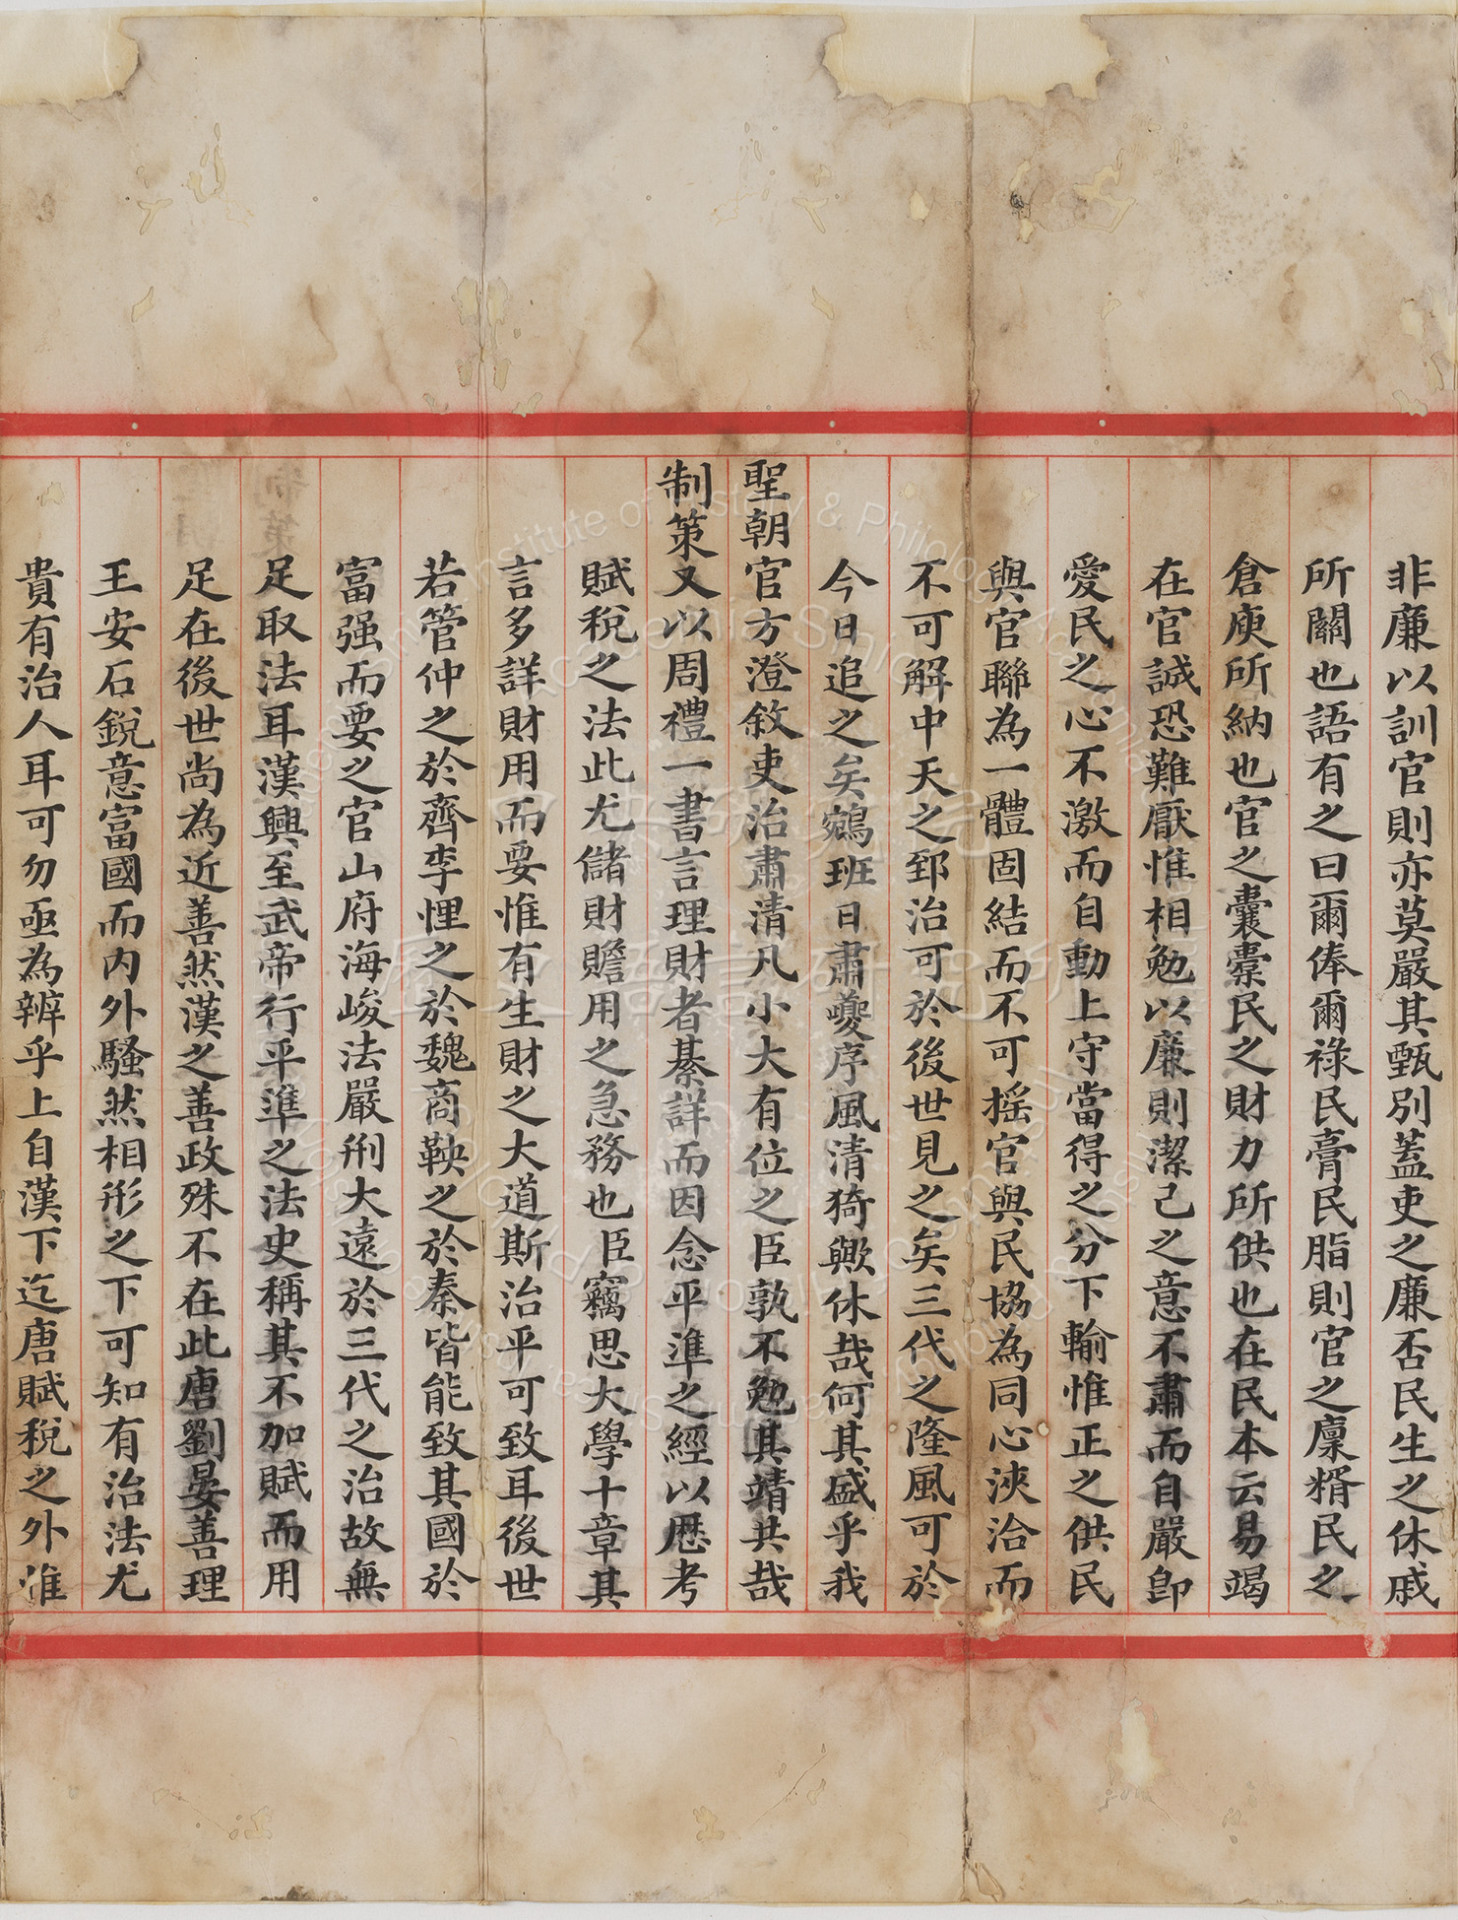 非廉以訓官則亦莫嚴其甄別蓋吏之廉否民生之休戚
所關也語有之曰爾俸爾祿民膏民脂則官之廩糈民之
倉庾所納也官之囊橐民之財力所供也在民本云易竭
在官誠恐難厭惟相勉以廉則潔己之意不肅而自嚴卽
愛民之心不激而自動上守當得之分下輸惟正之供民
與官聯為一體固結而不可搖官與民協為同心浹洽而
不可解中天之郅治可於後世見之矣三代之隆風可於
今日追之矣鵷班日肅夔序風清猗歟休哉何其盛乎我
聖朝官方澄敘吏治肅清凡小大有位之臣孰不勉其靖共哉
制策又以周禮一書言理財者綦詳而因念平準之經以歷考
賦稅之法此尤儲財贍用之急務也臣竊思大學十章其
言多詳財用而要惟有生財之大道斯治平可致耳後世
若管仲之於齊李悝之於魏商鞅之於秦皆能致其國於
富强而要之官山府海峻法嚴刑大遠於三代之治故無
足取法耳漢興至武帝行平準之法史稱其不加賦而用
足在後世尚為近善然漢之善政殊不在此唐劉晏善理
王安石銳意富國而內外騷然相形之下可知有治法尤
貴有治人耳可勿亟為辨乎上自漢下迄唐賦稅之外惟